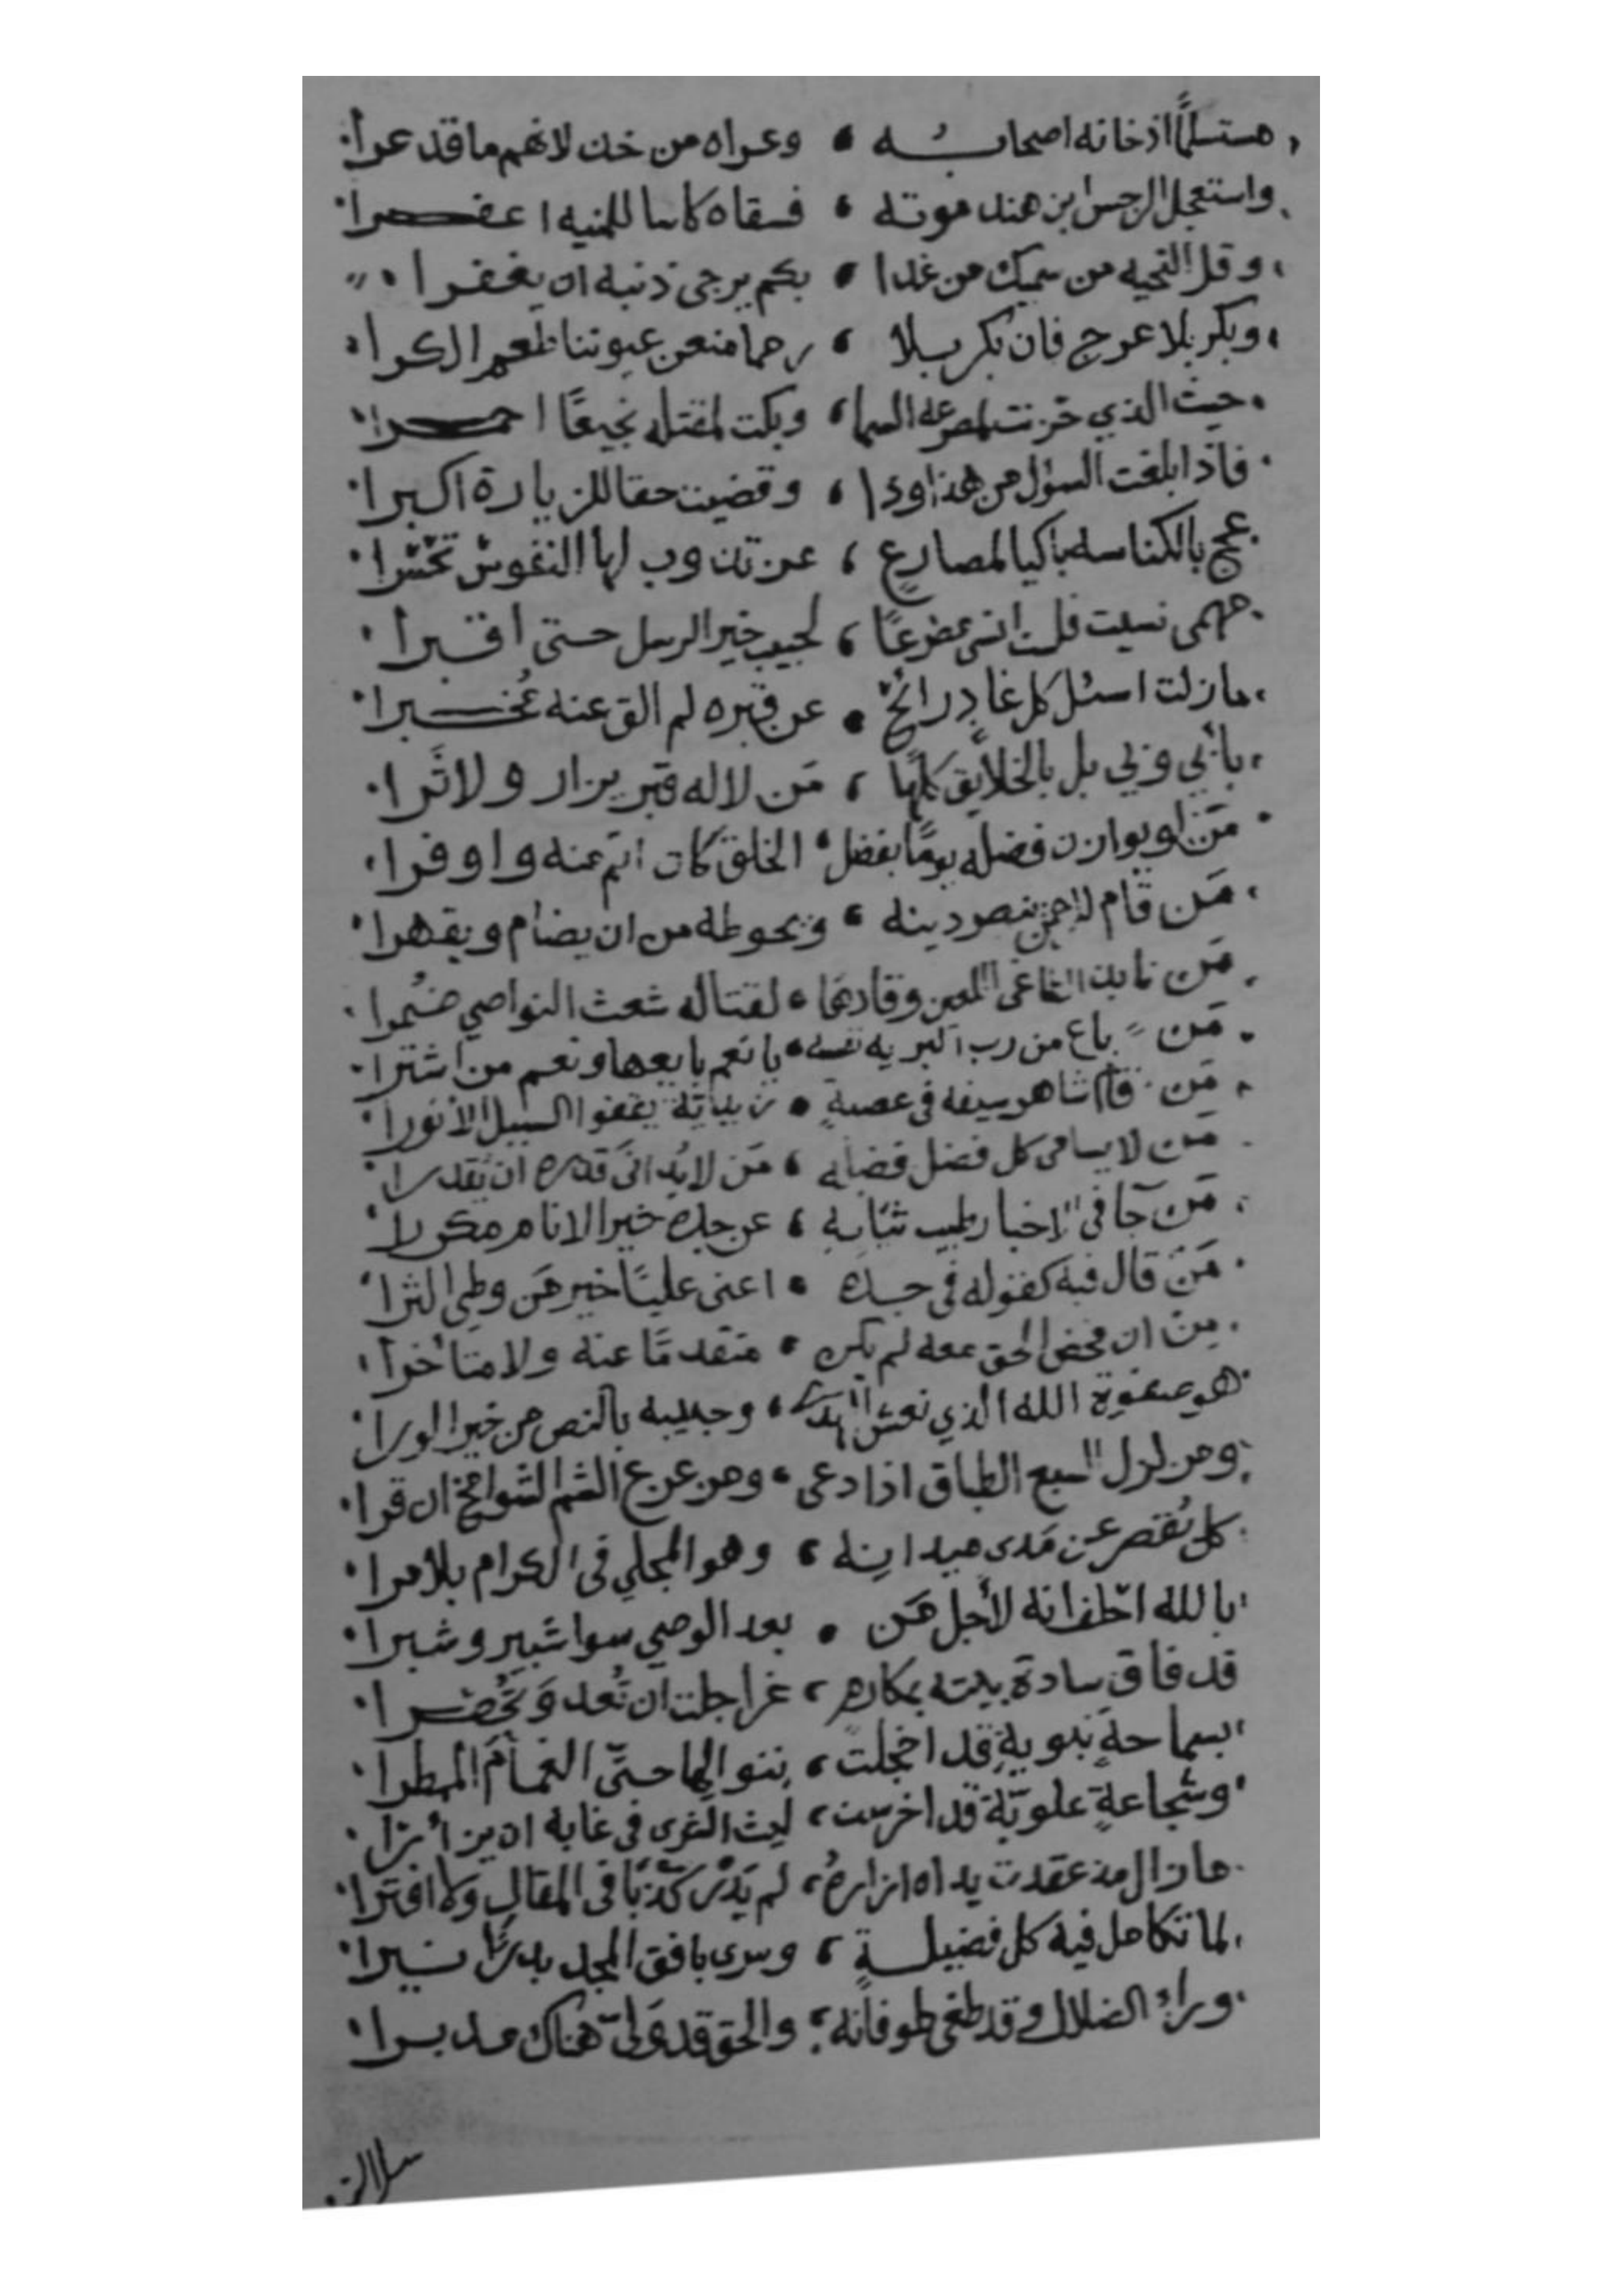 مستسلمًا اذ خانه اصحابُه وعراه من خذلانهم ما قد عرا
واستعجل الرجس ابن هند موته فسقاه كاسا للمنيه اعفرا
وقل التحيه من سميك من غدا بكم يرجى ذنبه ان يغفرا
وبكربلا عرج فان بكربلا رمما منعن عيوننا طعم الكرا
حيث الذي حزنت لمصرعه السما وبكت لمقتله نجيعًا احمرا
فاذا بلغت السؤل من هذا وذا وقضيت حقا للزيارة اكبرا
عج بالكناسه باكيا لمصارعٍ عن تذوب لها النفوس تحسّرا
مهمى نسيت فلست انسى مصرعًا لحبيب خير الرسل حتى اقبرا
ما زلت اسئل كل غادٍ رائحٍ عن قبره لم الق عنه مخبرا
بأبي وبي بل بالخلايق كلها مَن لا له قبر يزار ولا ثَرا
مَن لو يوازن فضله يومًا بفضل الخلق كان اتم عنه واوفرا
مَن قام لله ينصر دينه ويحوطه من ان يضام ويقهرا
مَن نابذ الطاغى اللعين وقادها لقتاله شعث النواصي ضُمرا
مَن باع من رب البريه نفسه يا نعم بايعها ونعم من اشترا
مَن قام شاهر سيفه في عصبةٍ زيدية يقفوا السبيل الانورا
مَن لا يسامى كل فضل فضله مَن لا يُدانَى قدره ان يُقدرا
مَن جآ في الاخبار طيب ثنآيه عن جده خير الانام مكررا
مَن قال فيه كقوله في جده اعنى عليًا خير مَن وطى الثرا
مِن ان محض الحق معه لم يكن متقدمًا عنه ولا متأخرا
هو صفوة الله الذي نعش الهدى وحبيبه بالنص من خير الورا
ومزلزل السبع الطباق اذا دعى ومزعزع الشم الشوامخ ان قرا
كل يُقصر عن مَدى ميدانه وهو المجلي في الكرام بلا مرا
بالله احلف انه لأجل مَن بعد الوصي سوا شبير وشبرا
قد فاق سادة بيته بمكارمٍ غرا جلت ان تُعد وَتُحصرا
بسماحةٍ نبويةٍ قد اخجلت بنوالها حتى الغمامَ الممطرا
وشجاعةٍ علويّة قد اخرست ليث الشرى في غابه ان يزأرا
ما زال مذ عقدت يداه ازارهُ لم يَدْر كذبًا في المقال ولا افترا
لما تكامل فيه كل فضيلةٍ وسرى بافق المجد بدرًا نيرا
وراى الضلال وقد طغى طوفانه والحق قد ولى هناك مدبرا